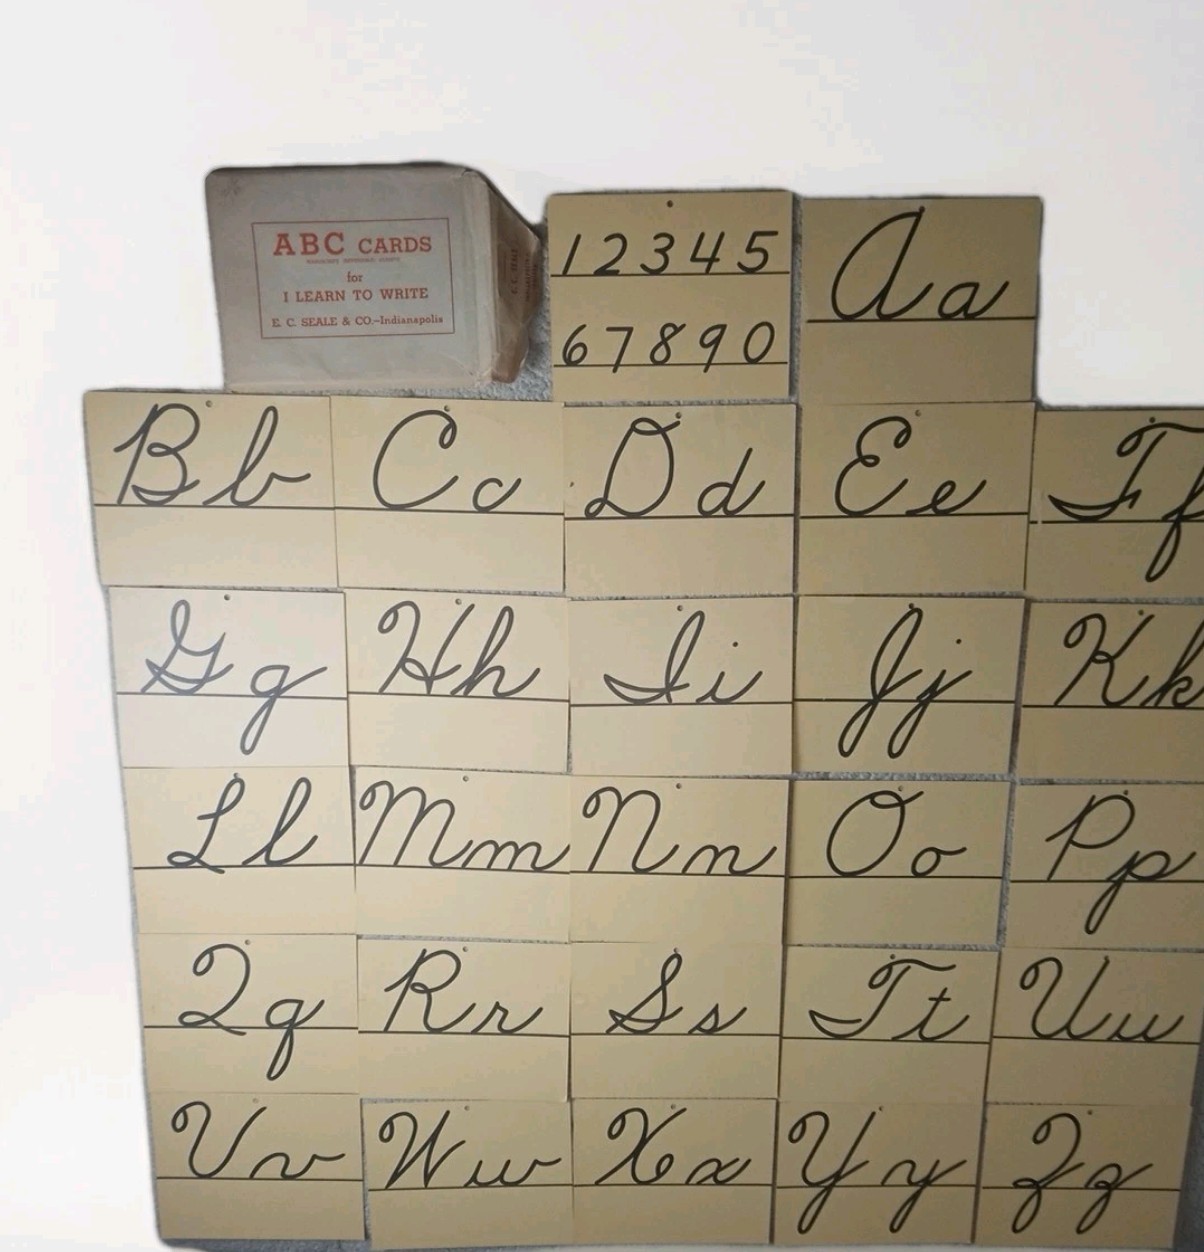 ABC CARDS
for
I LEARN TO WRITE
E. C. SEALE & CO.-Indianapolis
1 2 3 4 5
6 7 8 9 0
Aa
Bb
Cc
Dd
Ee
Ff
Gg
Hh
Ii
Jj
Kk
Ll
Mm
Nn
Oo
Pp
Qq
Rr
Ss
Tt
Uu
Vv
Ww
Xx
Yy
Zz